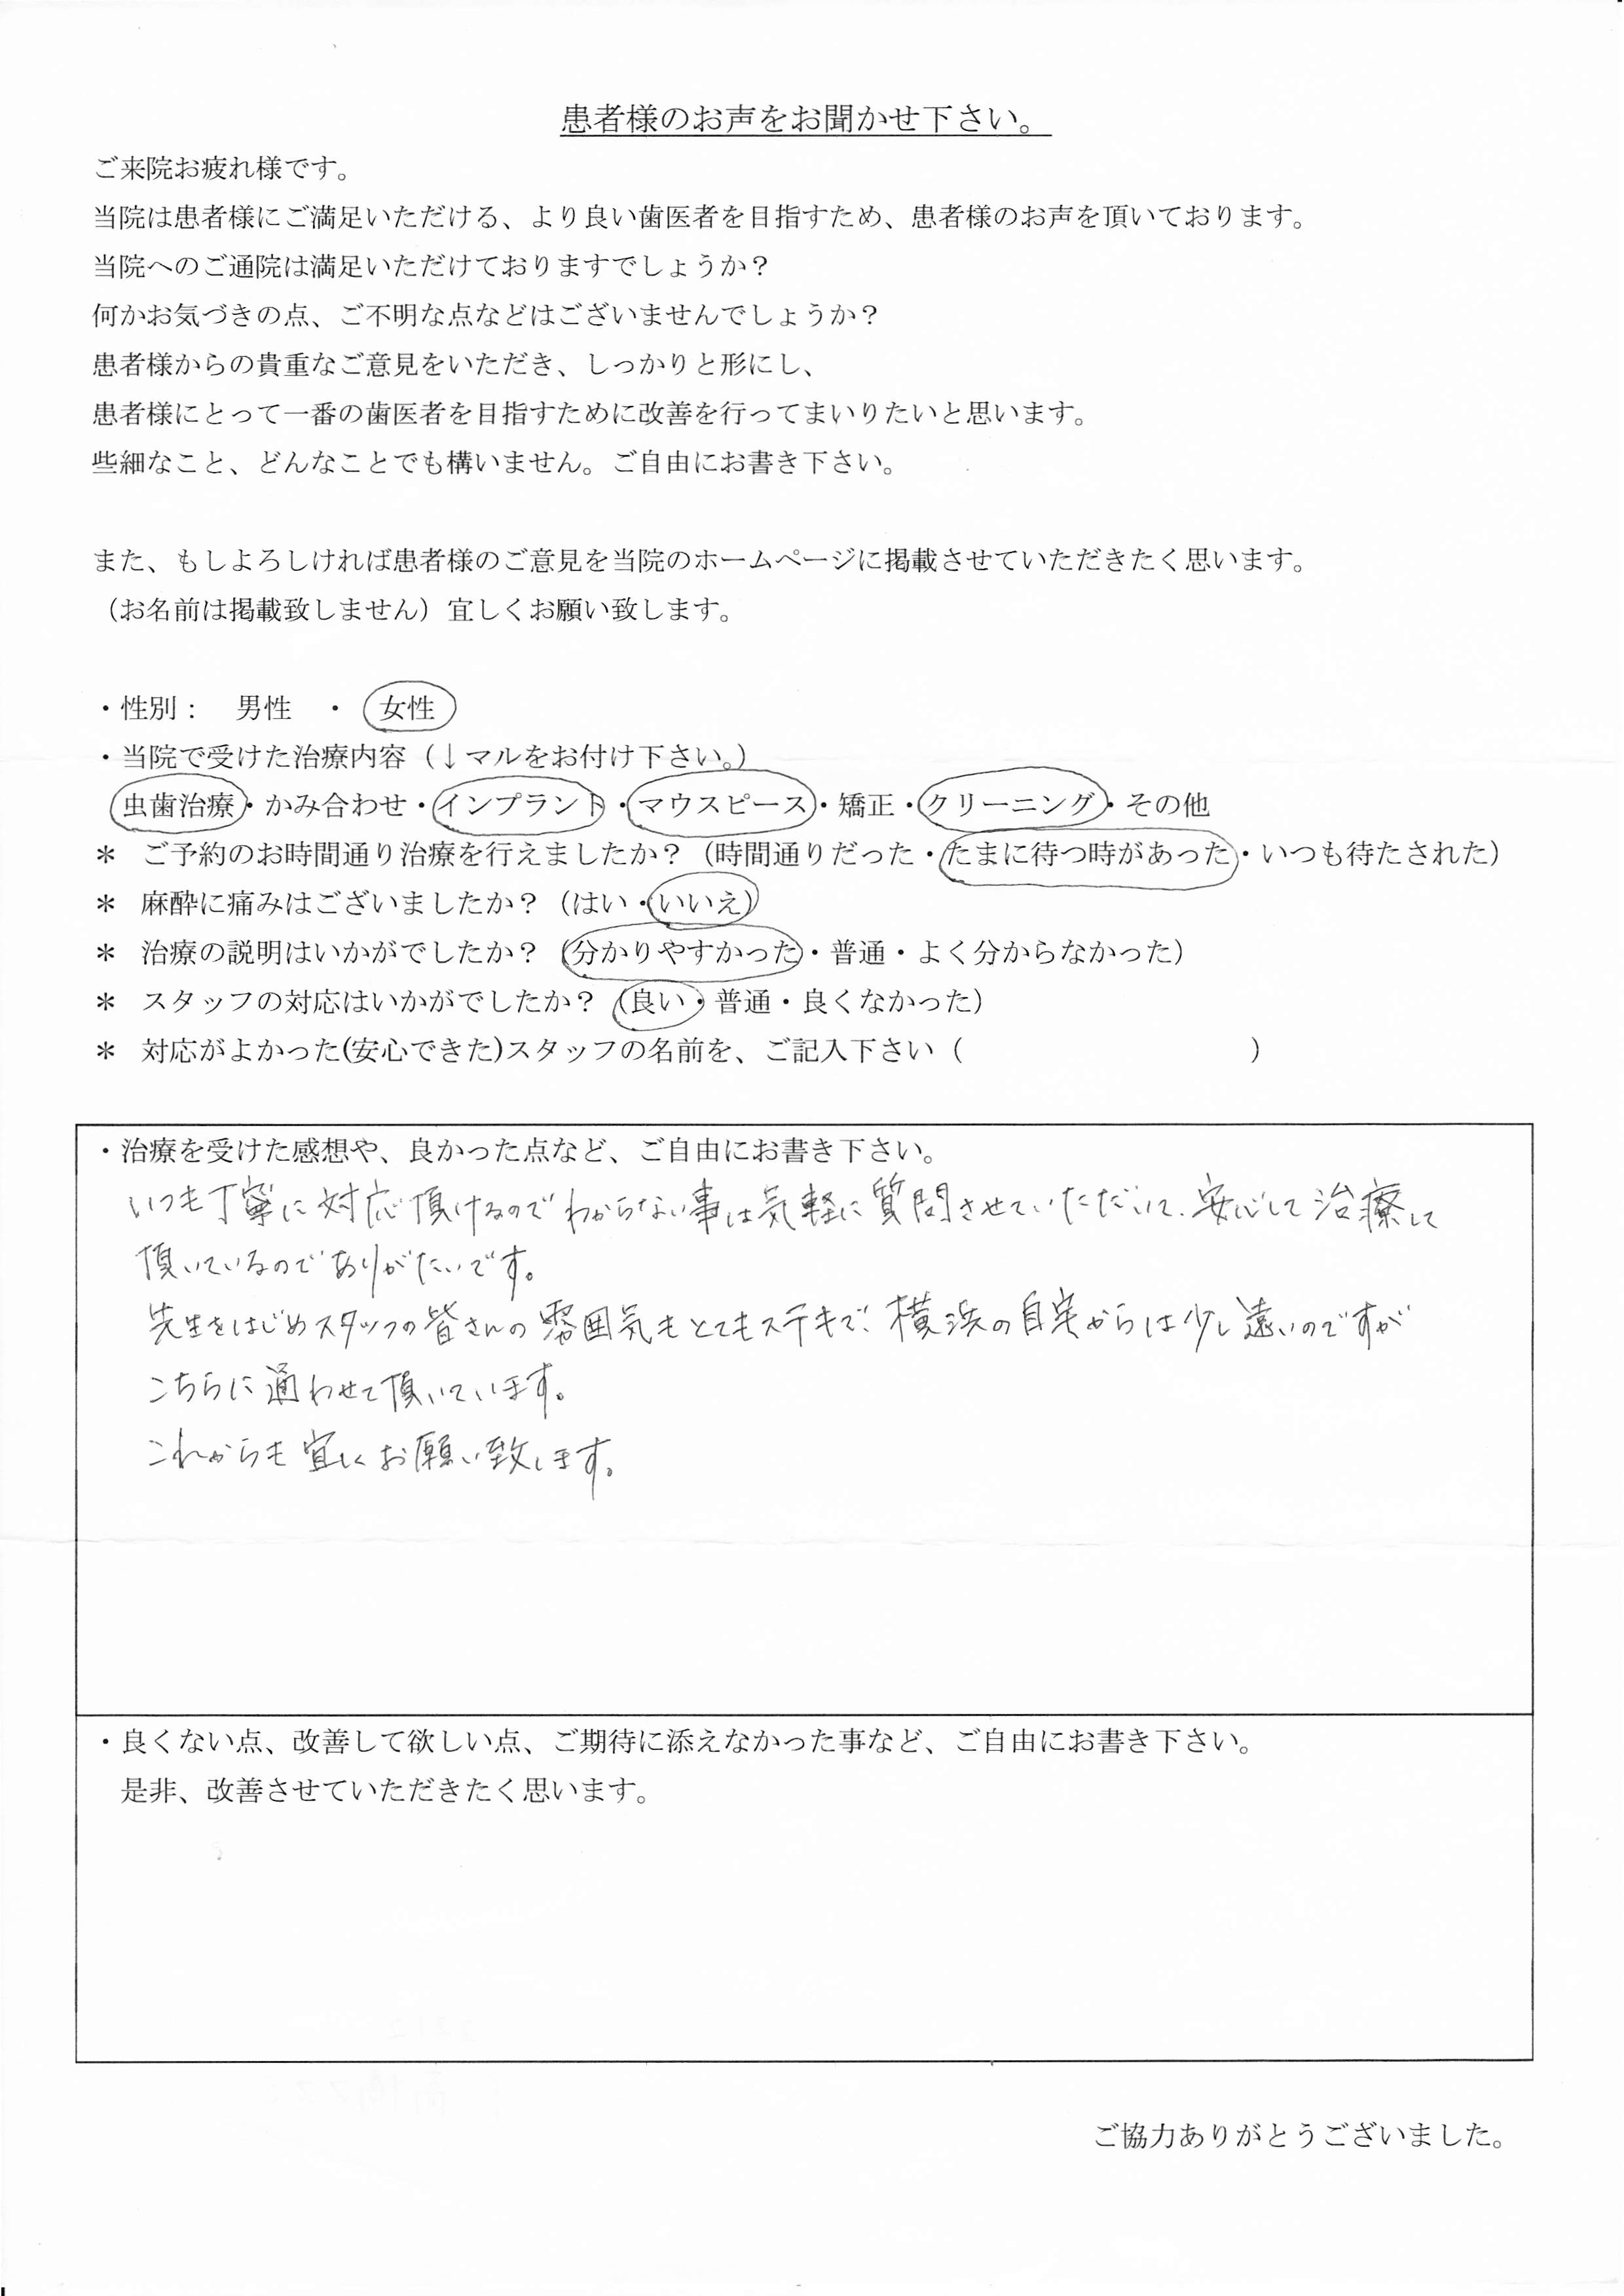 患者様のお声をお聞かせ下さい。
ご来院お疲れ様です。
当院は患者様にご満足いただける、より良い歯医者を目指すため、患者様のお声を頂いております。
当院へのご通院は満足いただけておりますでしょうか？
何かお気づきの点、ご不明な点などはございませんでしょうか？
患者様からの貴重なご意見をいただき、しっかりと形にし、
患者様にとって一番の歯医者を目指すために改善を行ってまいりたいと思います。
些細なこと、どんなことでも構いません。ご自由にお書き下さい。
また、もしよろしければ患者様のご意見を当院のホームページに掲載させていただきたく思います。
（お名前は掲載致しません）宜しくお願い致します。
・性別： 男性 ・ 女性
・当院で受けた治療内容（↓マルをお付け下さい。）
虫歯治療・かみ合わせ・インプラント・マウスピース・矯正・クリーニング・その他
＊ ご予約のお時間通り治療を行えましたか？（時間通りだった・たまに待つ時があった・いつも待たされた）
＊ 麻酔に痛みはございましたか？（はい・いいえ）
＊ 治療の説明はいかがでしたか？（分かりやすかった・普通・よく分からなかった）
＊ スタッフの対応はいかがでしたか？（良い・普通・良くなかった）
＊ 対応がよかった(安心できた)スタッフの名前を、ご記入下さい（ ）
・治療を受けた感想や、良かった点など、ご自由にお書き下さい。
いつも丁寧に対応頂けるのでわからない事は気軽に質問させていただいて、安心して治療して
頂いているのでありがたいです。
先生をはじめスタッフの皆さんの雰囲気もとてもステキで、横浜の自宅からは少し遠いのですが
こちらに通わせて頂いています。
これからも宜しくお願い致します。
・良くない点、改善して欲しい点、ご期待に添えなかった事など、ご自由にお書き下さい。
是非、改善させていただきたく思います。
ご協力ありがとうございました。